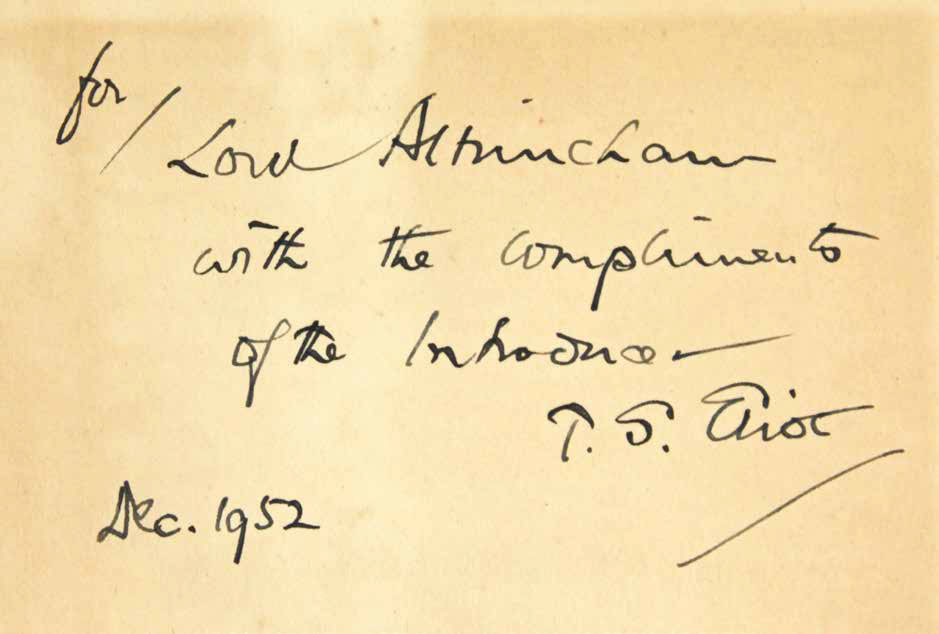 for/
Lord Altrincham
with the compliments
of the Introducer
T. S. Eliot
Dec. 1952